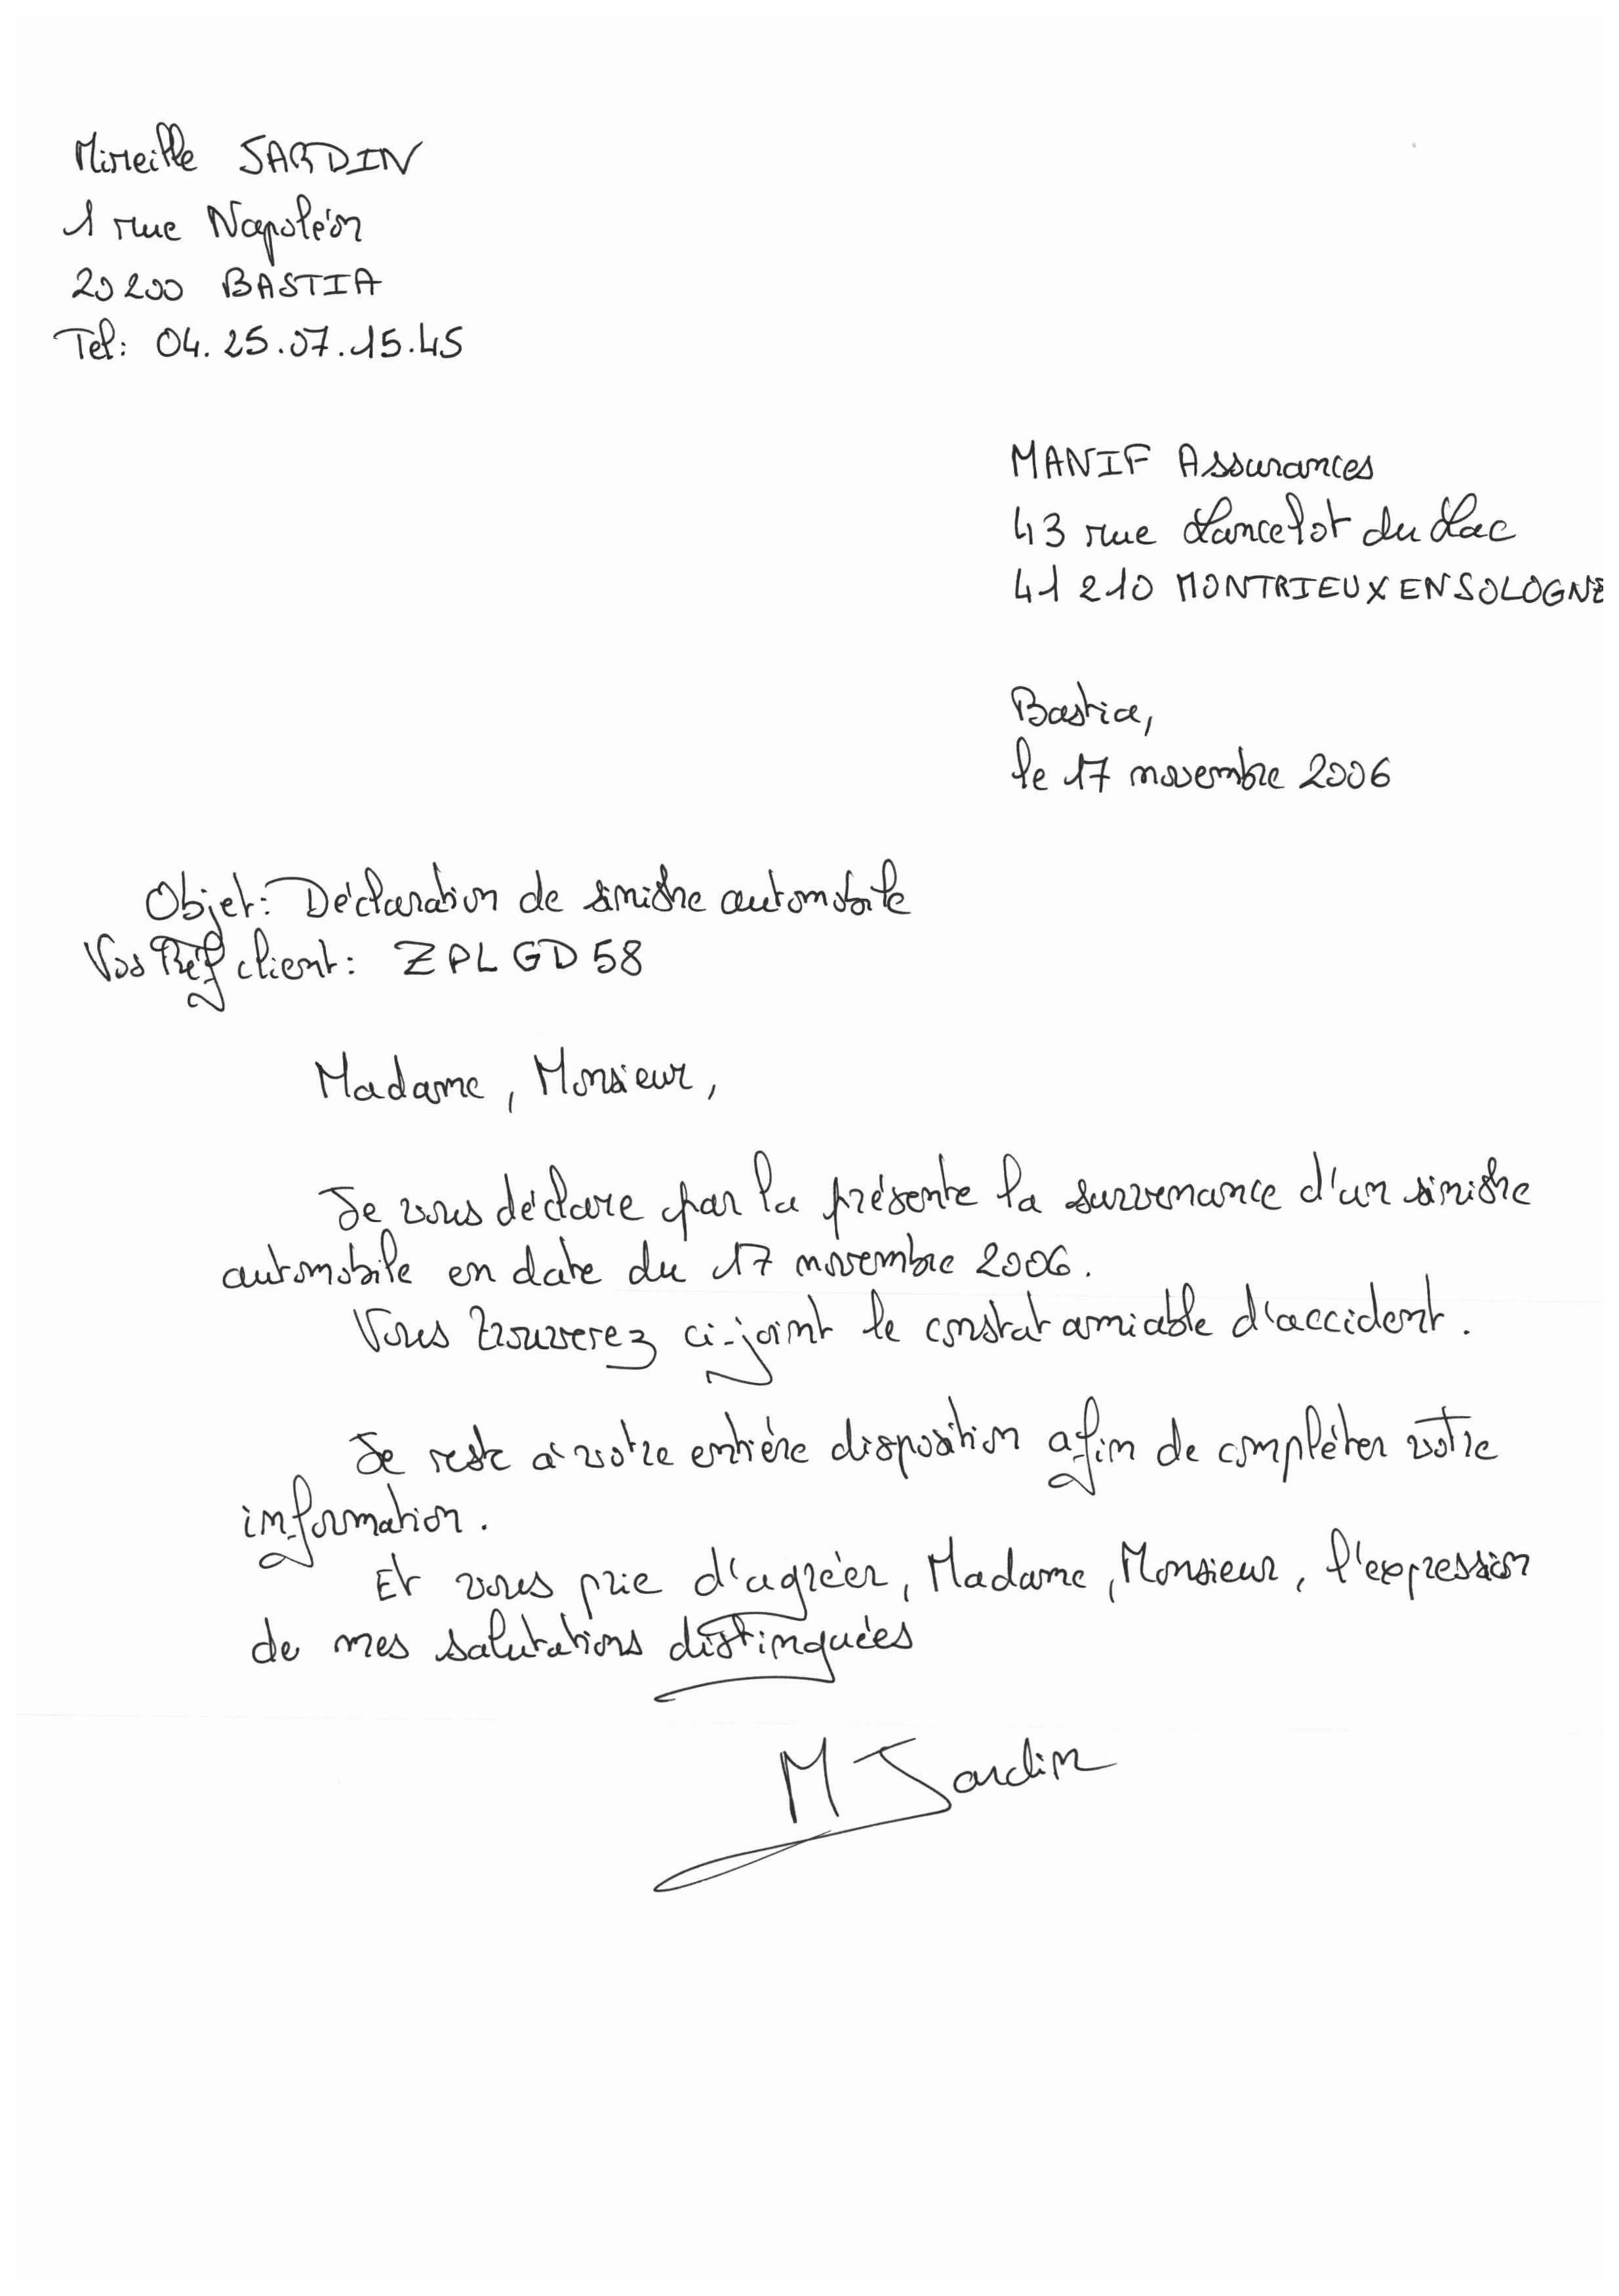 Mireille SARDIN
1 rue Napoléon
20200 BASTIA
Tel: 04.25.07.15.45
MANIF Assurances
43 rue Lancelot du Lac
41 210 MONTRIEUX EN SOLOGNE
Bastia,
le 17 novembre 2006
Objet: Déclaration de sinistre automobile
Vos Réf client: ZPLGD58
Madame, Monsieur,
Je vous déclare par la présente la survenance d'un sinistre
automobile en date du 17 novembre 2006.
Vous trouverez ci-joint le constat amiable d'accident.
Je reste à votre entière disposition afin de compléter votre
information.
Et vous prie d'agréer, Madame, Monsieur, l'expression
de mes salutations distinguées
M Sardin